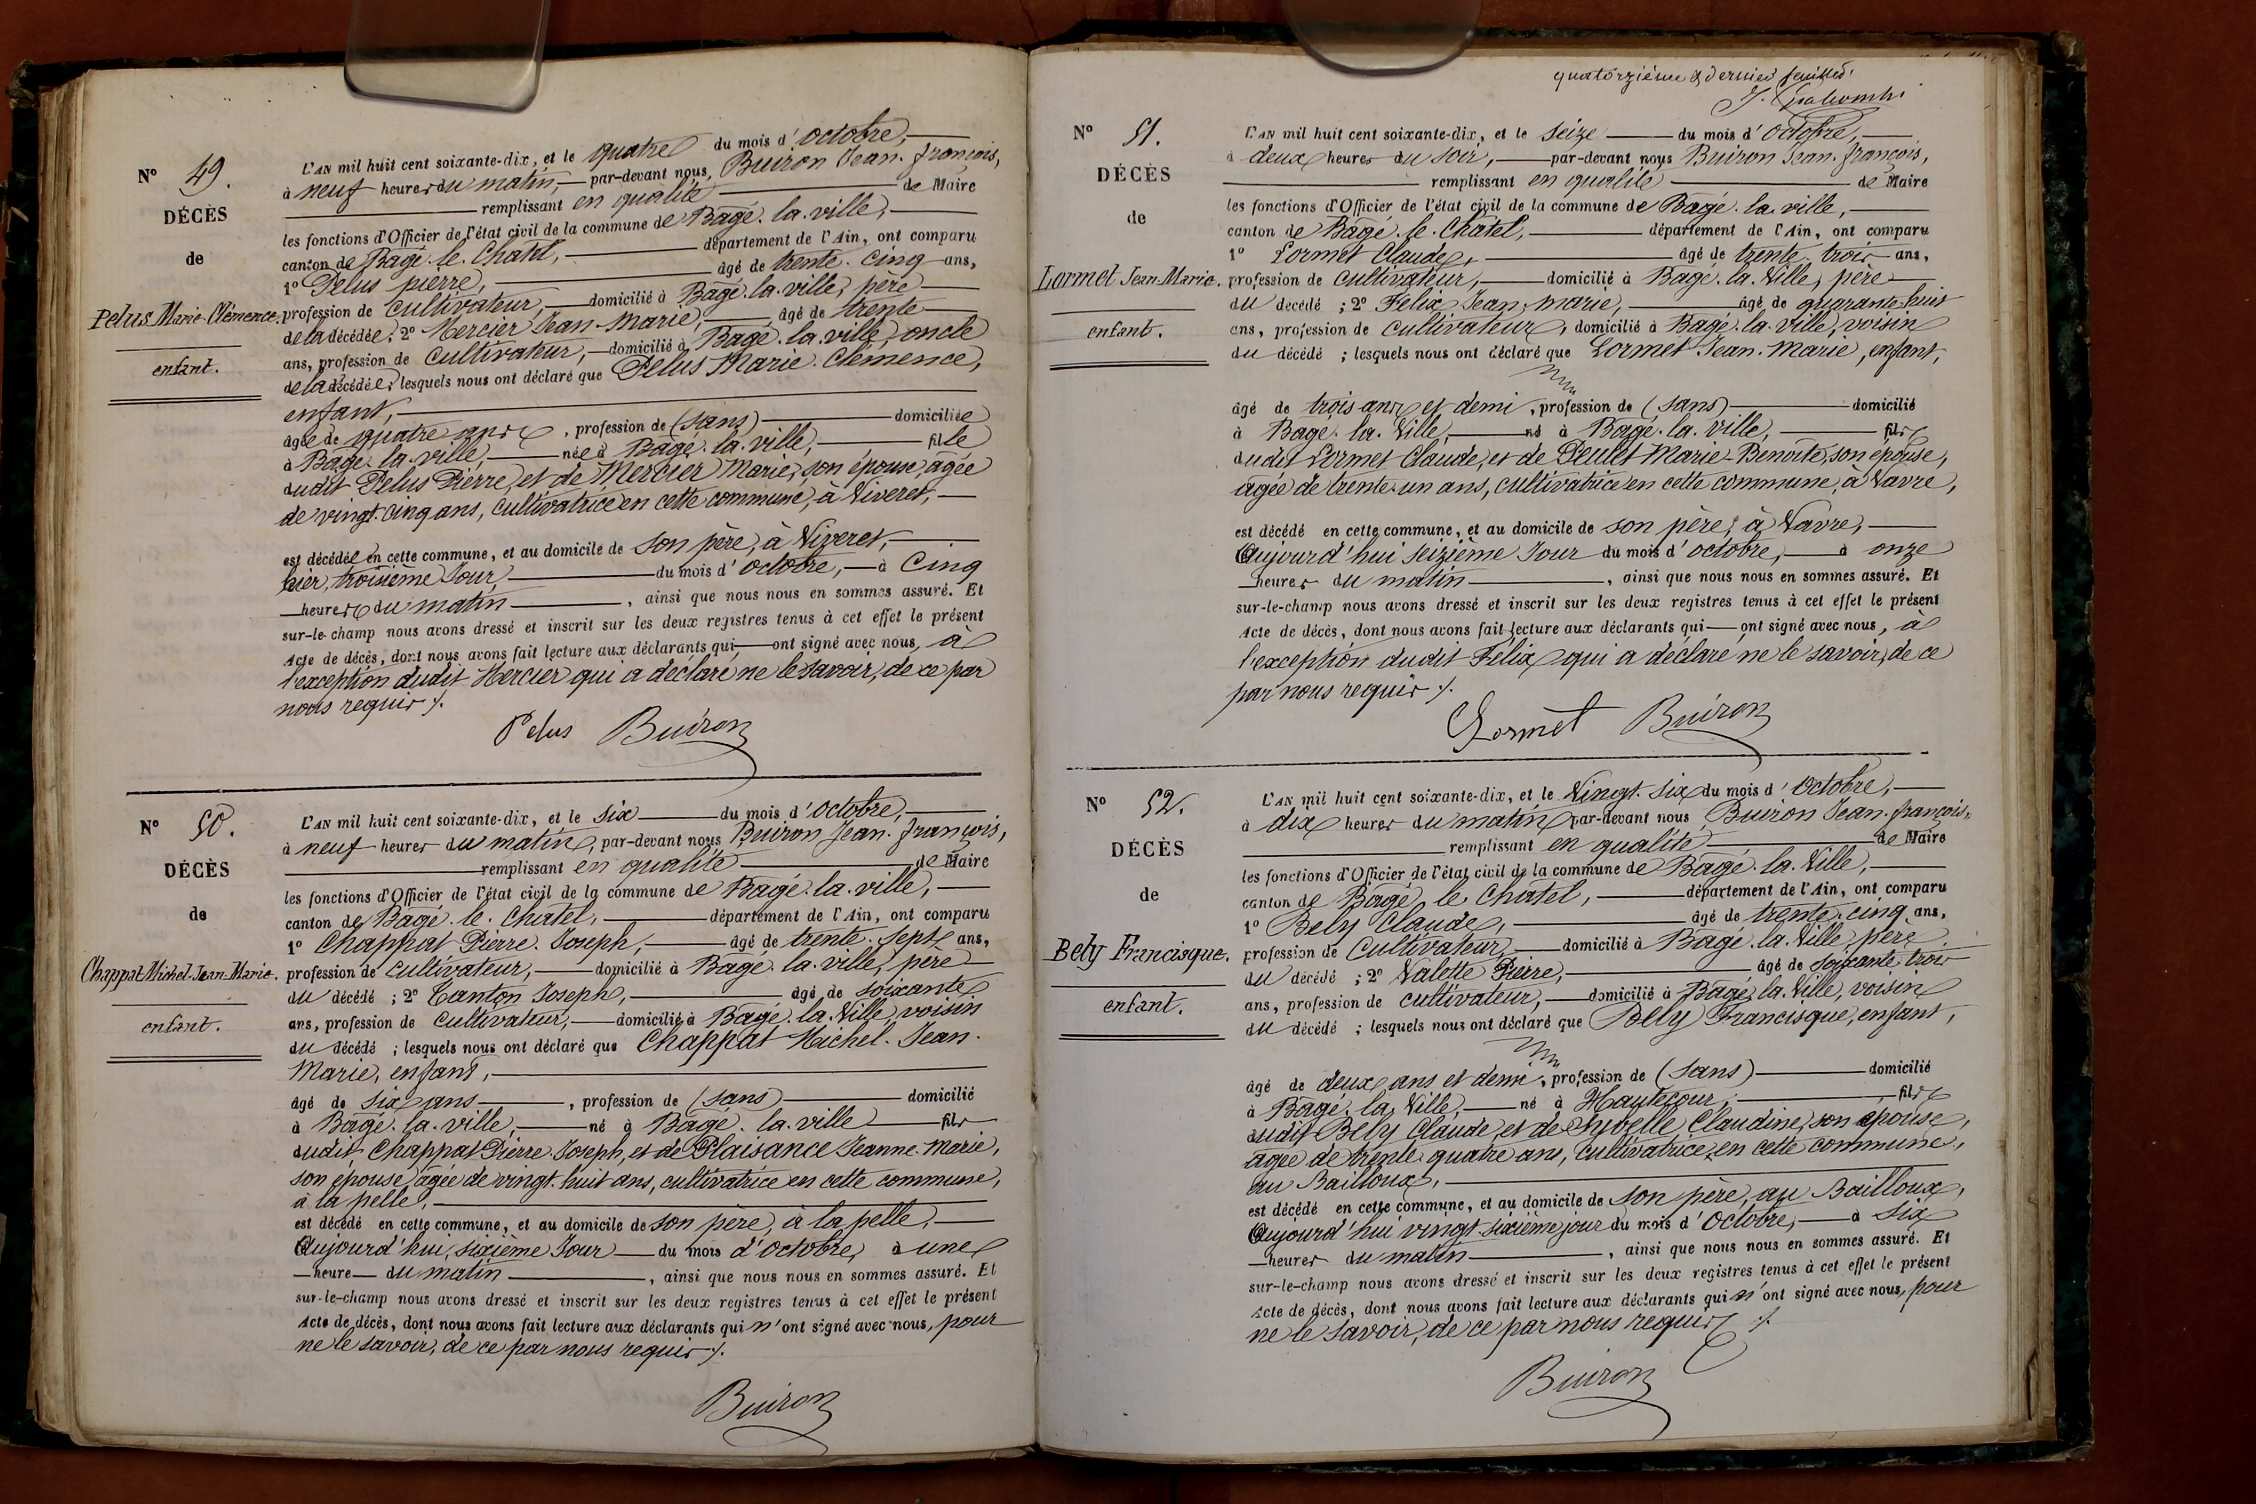 N° 49.
DÉCÈS
de
Pelus Marie-Clémence.
enfant.
L'AN mil huit cent soixante-dix, et le quatre du mois d'octobre,
à neuf heures du matin, par-devant nous, Buiron Jean-françois,
remplissant en qualité de Maire
les fonctions d'Officier de l'état civil de la commune de Bagé-la-ville,
canton de Bagé-le-Chatel, département de l'Ain, ont comparu
1° Pelus pierre, âgé de trente-cinq ans,
profession de cultivateur, domicilié à Bagé-la-ville, père
de la décédée; 2° Mercier Jean-Marie, âgé de trente
ans, profession de cultivateur, domicilié à Bagé-la-ville, oncle
de la décédée; lesquels nous ont déclaré que Pelus Marie-Clémence,
enfant,
âgée de quatre ans, profession de (sans) domiciliée
à Bagé-la-ville, née à Bagé-la-ville, fille
dudit Pelus Pierre, et de Mercier Marie, son épouse, âgée
de vingt-cinq ans, cultivatrice en cette commune, à Viveret,
est décédée en cette commune, et au domicile de son père, à Viveret,
hier, troisième Jour du mois d'octobre, à cinq
heures du matin, ainsi que nous nous en sommes assuré. Et
sur-le-champ nous avons dressé et inscrit sur les deux registres tenus à cet effet le présent
Acte de décès, dont nous avons fait lecture aux déclarants qui ont signé avec nous, à
l'exception dudit Mercier qui a déclaré ne le savoir, de ce par
nous requis ./.
Pelus Buiron
N° 50.
DÉCÈS
de
Chappat Michel-Jean-Marie.
enfant.
L'AN mil huit cent soixante-dix, et le six du mois d'octobre,
à neuf heures du matin, par-devant nous Buiron Jean-françois,
remplissant en qualité de Maire
les fonctions d'Officier de l'état civil de la commune de Bagé-la-ville,
canton de Bagé-le-Chatel, département de l'Ain, ont comparu
1° Chappat Pierre-Joseph, âgé de trente-sept ans,
profession de cultivateur, domicilié à Bagé-la-ville, père
du décédé; 2° Tanton Joseph, âgé de soixante
ans, profession de cultivateur, domicilié à Bagé-la-Ville, voisin
du décédé; lesquels nous ont déclaré que Chappat Michel-Jean-
Marie, enfant,
âgé de six ans, profession de (sans) domicilié
à Bagé-la-ville, né à Bagé-la-ville fils
dudit Chappat Pierre-Joseph, et de Plaisance Jeanne-Marie,
son épouse, âgée de vingt-huit ans, cultivatrice en cette commune,
à la pelle,
est décédé en cette commune, et au domicile de son père, à la pelle,
Aujourd'hui, sixième Jour du mois d'octobre, à une
heure du matin, ainsi que nous nous en sommes assuré. Et
sur-le-champ nous avons dressé et inscrit sur les deux registres tenus à cet effet le présent
Acte de décès, dont nous avons fait lecture aux déclarants qui n'ont signé avec nous, pour
ne le savoir, de ce par nous requis ./.
Buiron
quatorzième & dernier feuillet.
N° 51.
DÉCÈS
de
Lormet Jean-Marie.
enfant.
L'AN mil huit cent soixante-dix, et le seize du mois d'octobre,
à deux heures du soir, par-devant nous Buiron Jean-françois,
remplissant en qualité de Maire
les fonctions d'Officier de l'état civil de la commune de Bagé-la-ville,
canton de Bagé-le-Chatel, département de l'Ain, ont comparu
1° Lormet Claude, âgé de trente-trois ans,
profession de cultivateur, domicilié à Bagé-la-Ville, père
du décédé; 2° Felix Jean-marie, âgé de quarante-huit
ans, profession de cultivateur, domicilié à Bagé-la-ville, voisin
du décédé; lesquels nous ont déclaré que Lormet Jean-Marie, enfant,
âgé de trois ans et demi, profession de (sans) domicilié
à Bagé-la-Ville, né à Bagé-la-ville, fils
dudit Lormet Claude, et de Peulet Marie-Benoîte, son épouse,
âgée de trente-un ans, cultivatrice en cette commune, à Vavre,
est décédé en cette commune, et au domicile de son père, à Vavre,
Aujourd'hui seizième Jour du mois d'octobre, à onze
heures du matin, ainsi que nous nous en sommes assuré. Et
sur-le-champ nous avons dressé et inscrit sur les deux registres tenus à cet effet le présent
Acte de décès, dont nous avons fait lecture aux déclarants qui ont signé avec nous, à
l'exception dudit Félix qui a déclaré ne le savoir, de ce
par nous requis ./.
Lormet Buiron
N° 52.
DÉCÈS
de
Bely Francisque.
enfant.
L'AN mil huit cent soixante-dix, et le Vingt-six du mois d'octobre,
à dix heures du matin par-devant nous Buiron Jean-françois,
remplissant en qualité de Maire
les fonctions d'Officier de l'état civil de la commune de Bagé-la-Ville,
canton de Bagé-le-Chatel, département de l'Ain, ont comparu
1° Bely Claude, âgé de trente-cinq ans,
profession de cultivateur, domicilié à Bagé-la-Ville, père
du décédé; 2° Valette Pierre, âgé de soixante-trois
ans, profession de cultivateur, domicilié à Bagé-la-Ville, voisin
du décédé; lesquels nous ont déclaré que Bely Francisque, enfant,
âgé de deux ans et demi, profession de (sans) domicilié
à Bagé-la-Ville, né à Hautecour, fils
dudit Bely Claude, et de Sybelle Claudine, son épouse,
âgée de trente-quatre ans, cultivatrice en cette commune,
au Bailloux,
est décédé en cette commune, et au domicile de son père, au Bailloux,
Aujourd'hui vingt-sixième jour du mois d'octobre, à six
heures du matin, ainsi que nous nous en sommes assuré. Et
sur-le-champ nous avons dressé et inscrit sur les deux registres tenus à cet effet le présent
Acte de décès, dont nous avons fait lecture aux déclarants qui n'ont signé avec nous, pour
ne le savoir, de ce par nous requis ./.
Buiron